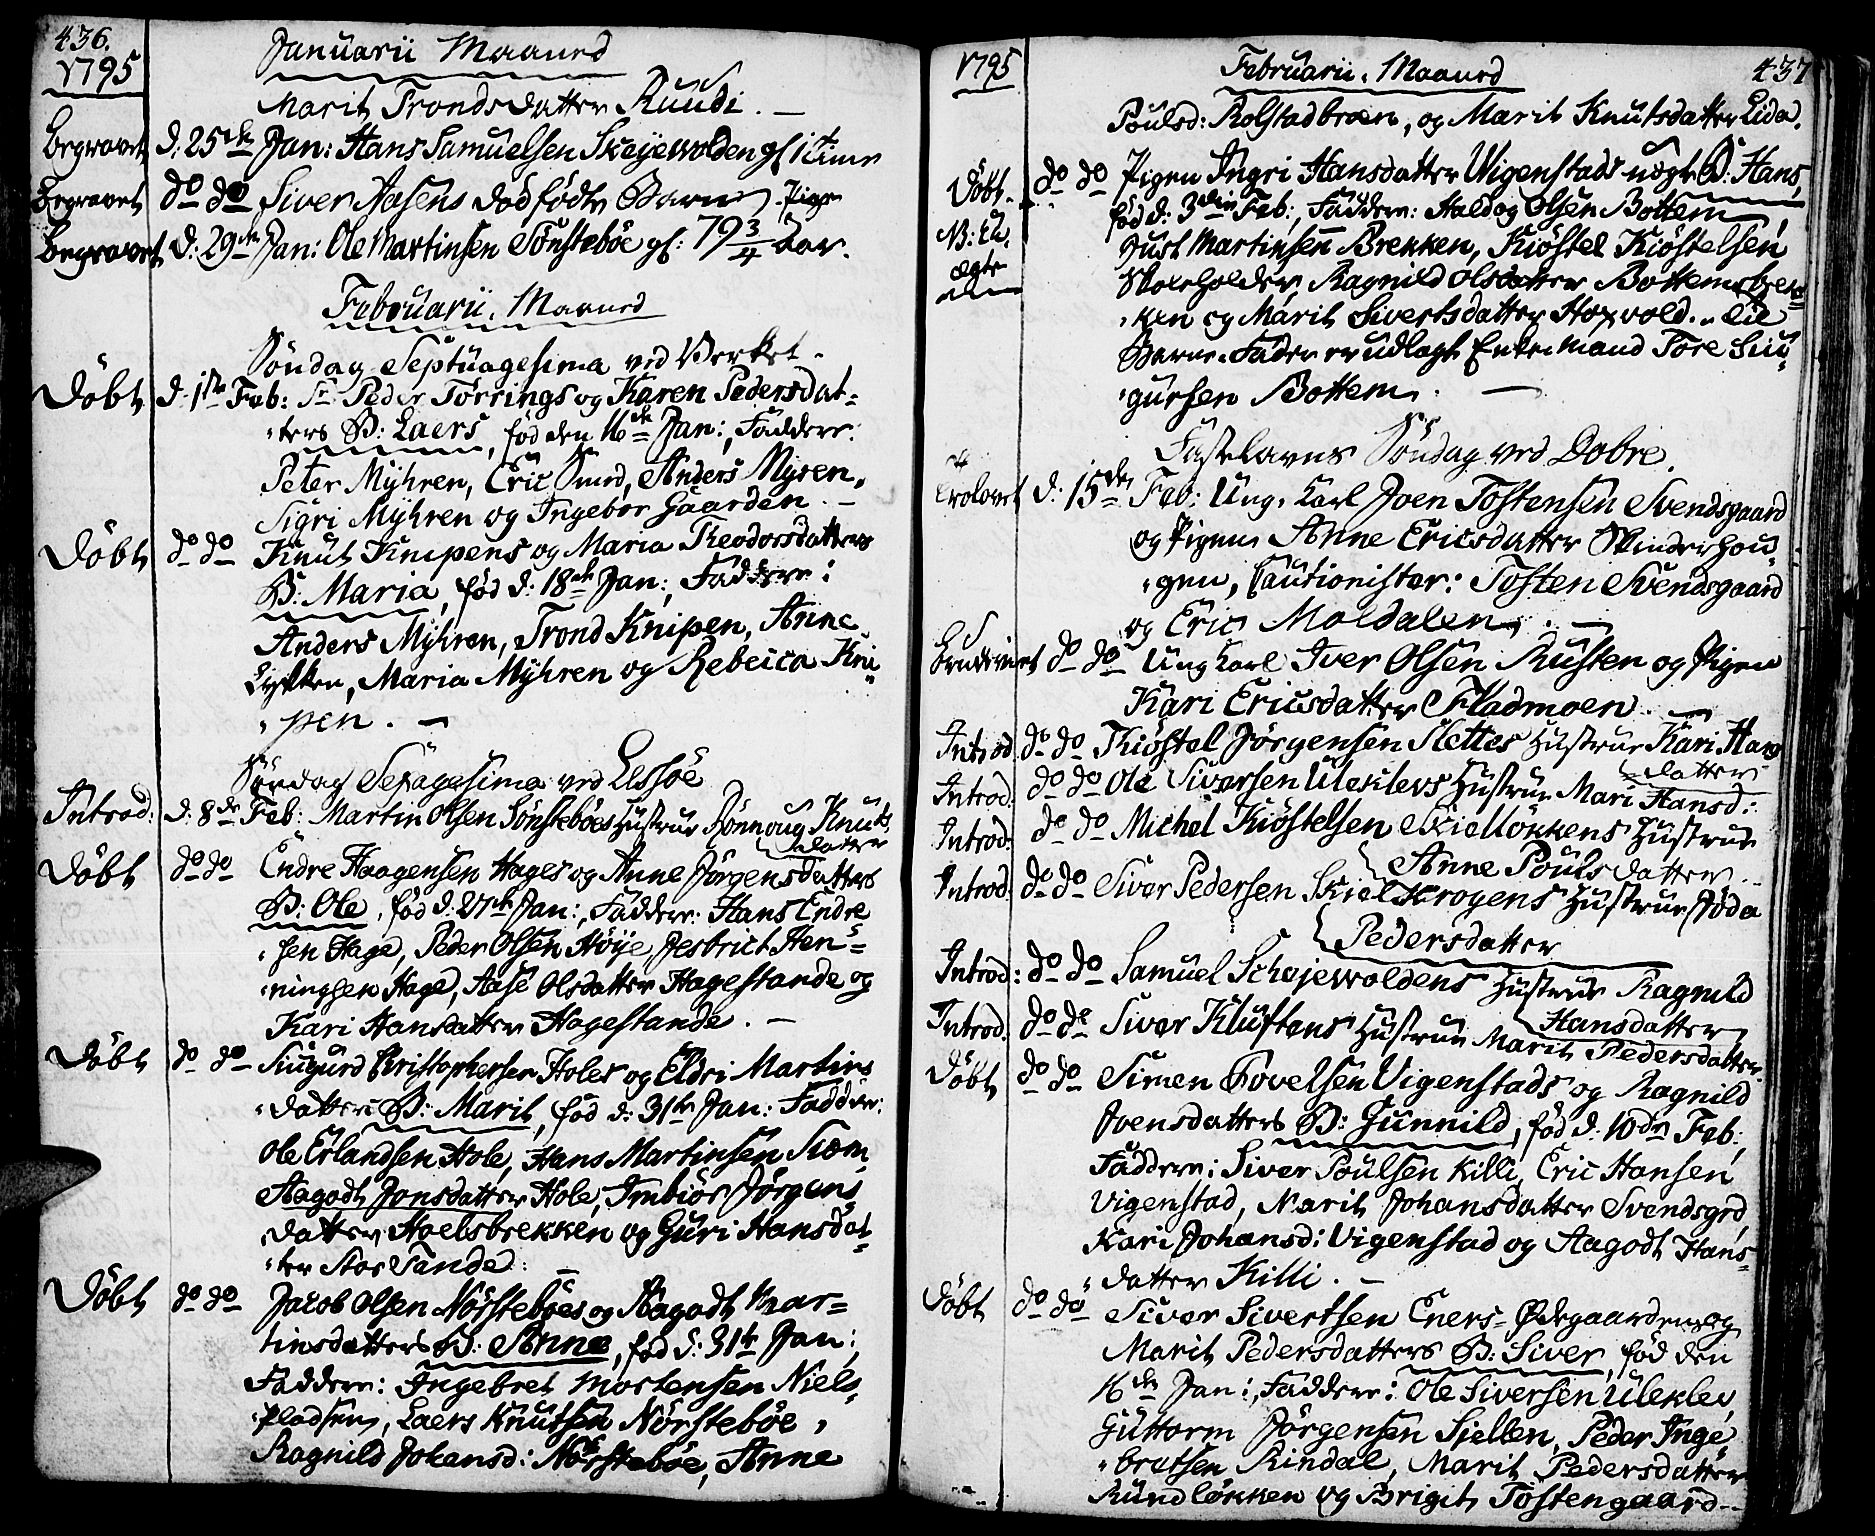 436.
1795
Januarii Maaned
Marit Trondsdatter Ruudi. —
Begravet d: 25de Jan: Hans Samuelsen Skøjewolden gl: 1 Time
Begravet do do Siver Aasens dødfødte Barn. Pige
Begravet d: 29de Jan: Ole Martinsen Tønstebøe gl: 79 3/4 Aar.
Februarii Maaned
Søndag Septuagesima ved Verket.
Døbt d: 1ste Feb: Sr Peder Tørrings og Karen Pedersdat=
"ters B: Laers, fød den 16de Jan:, Faddere:
Peter Myhren, Eric Smed, Anders Myren,
Sigri Myhren og Ingebor Gaarden. —
Døbt do do Knut Knipens og Maria Theodorsdatters
B: Maria, fød d: 18de Jan:, Faddere:
Anders Myhren, Trond Knipen, Anne
Lykken, Maria Myhren og Rebeica Kni"
"pen. —
Søndag Sexagesima ved Lessøe
Introd: d: 8de Feb: Martin Olsen Sønstebøes Hustrue Rønnoug Knuts
datter
Døbt do do Endre Haagensen Hages og Anne Jørgensdatters
B: Ole, fød d: 27de Jan:, Faddere: Hans Endre
"sen Hage, Peder Olsen Høye, Jesbrict Hen=
"ningsen Hage, Aase Olsdatter Hagestande og
Kari Hansdatter Hagestande. —
Døbt do do Siugurd Christophersen Holes og Eldri Martins
"datters B: Marit, fød d: 31te Jan: Faddere:
Ole Erlandsen Hole, Hans Martinsen Kiem,
Aagodt Jonsdatter Hole, Imbiør Jørgens
datter Hoelsbrekken og Guri Hansdat=
"ter Stor Tande. —
Døbt do do Jacob Olsen Nørstebøes og Aagodt Mar=
tinsdatters B: Anne, fød d: 31te Jan:,
Faddere: Ingebret Mortensen Niels,
"pladsen, Laers Knutsen Nørstebøe,
Ragnild Johansd: Nørstebøe, Anne
1795
Februarii Maaned
437
Poulsd: Rolstadbraen, og Marit Knutsdatter Lida.
Døbt. do do Pigen Ingri Hansdatter Wigenstads uægte B: Hans,
N: B: U. fød d: 3die Feb:, Faddere: Haldog Olsen Bottem,
ægte Just Martinsen Brekken, Kiøstel Kiøstelsen
Skoleholder, Ragnild Olsdatter Bottemsbrek=
"ken og Marit Sivertsdatter Hoxvold. Til
Barne-Fader er udlagt Enke-Mand Tore Siu"
"gursen Bottem. —
Fastelavns Søndag ved Dobre.
Trolovet d: 15de Feb: Ung. Karl Joen Tostensen Svendsgaard
og Pigen Anne Ericsdatter Skinderhou"
"gen, Cautionister: Tosten Svendsgaard
og Eric Moldalen. —
Brudeviet do do Ung Karl Iver Olsen Rusten og Pigen
Kari Ericsdatter Fladmoen. —
Introd. do do Kiøstel Jørgensen Slettes Hustrue Kari Hans
datter
Introd: do do Ole Siversen Uleklevs Hustrue Mari Hansd:
Introd: do do Michel Kiøstelsen Skielløkkens Hustrue
Anne Pouls datter.
Introd: do do Siver Pedersen Skielkrogens Hustrue Jøda
Pedersdatter
Introd: do do Samuel Schøjewoldens Hustrue Ragnild
Hansdatter
Introd. do do Siver Kluftens Hustrue Marit Pedersdatter.
Døbt do do Simen Povelsen Vigenstads og Ragnild
Joensdatters B: Gunnild, fød d: 10de Feb:,
Faddere: Siver Poulsen Killi, Eric Hansen
Vigenstad, Marit Johansdatter Svendsgrd,
Kari Johansd: Vigenstad og Aagodt Hans=
"datter Killi. —
Døbt do do Siver Sivertsen Eners=Ødegaardens og
Marit Pedersdatters B: Siver, fød den
16de Jan:, Faddere: Ole Siversen Uleklev,
Guttorm Jørgensen Sjellen, Peder Inge"
"bretsen Rindal, Marit Pedersdatter
Rundløkken og Brigit Tostengaard. —